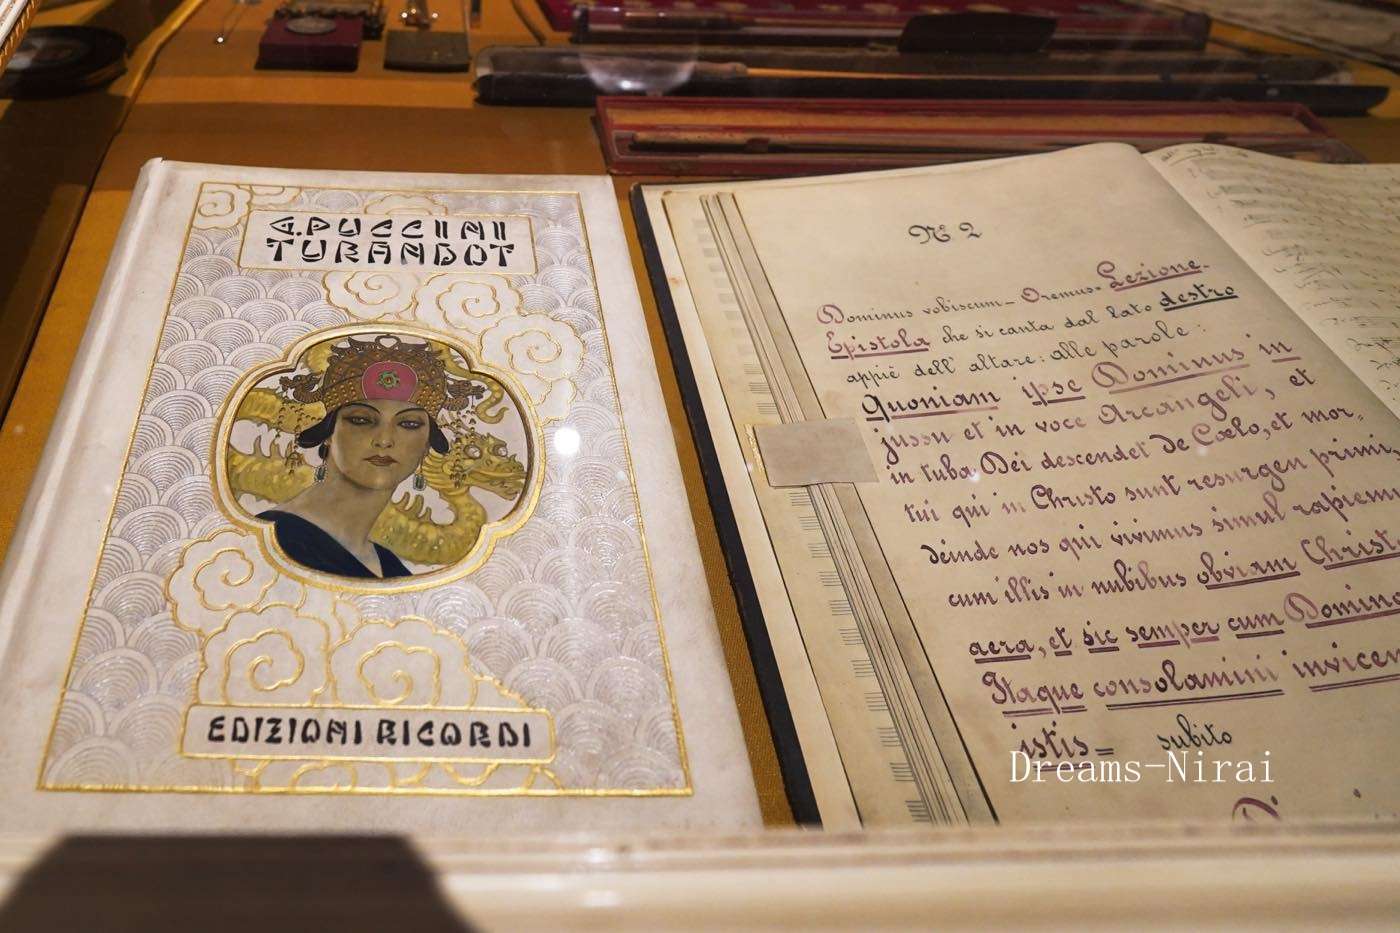 G. PUCCINI
TURANDOT
EDIZIONI RICORDI
No 2
Dominus vobiscum_ Oremus= Lezione.
Epistola che si canta dal lato destro
appiè dell' altare: alle parole:
Quoniam ipse Dominus in
jussu et in voce Arcangeli, et
in tuba Dei descendet de Cœlo, et mor=
tui qui in Christo sunt resurgen primi,
deinde nos qui vivimus simul rapiemu
cum illis in nubibus obviam Christ
aera, et sic semper cum Domino
Itaque consolamini invicem
istis= subito
Dreams-Nirai